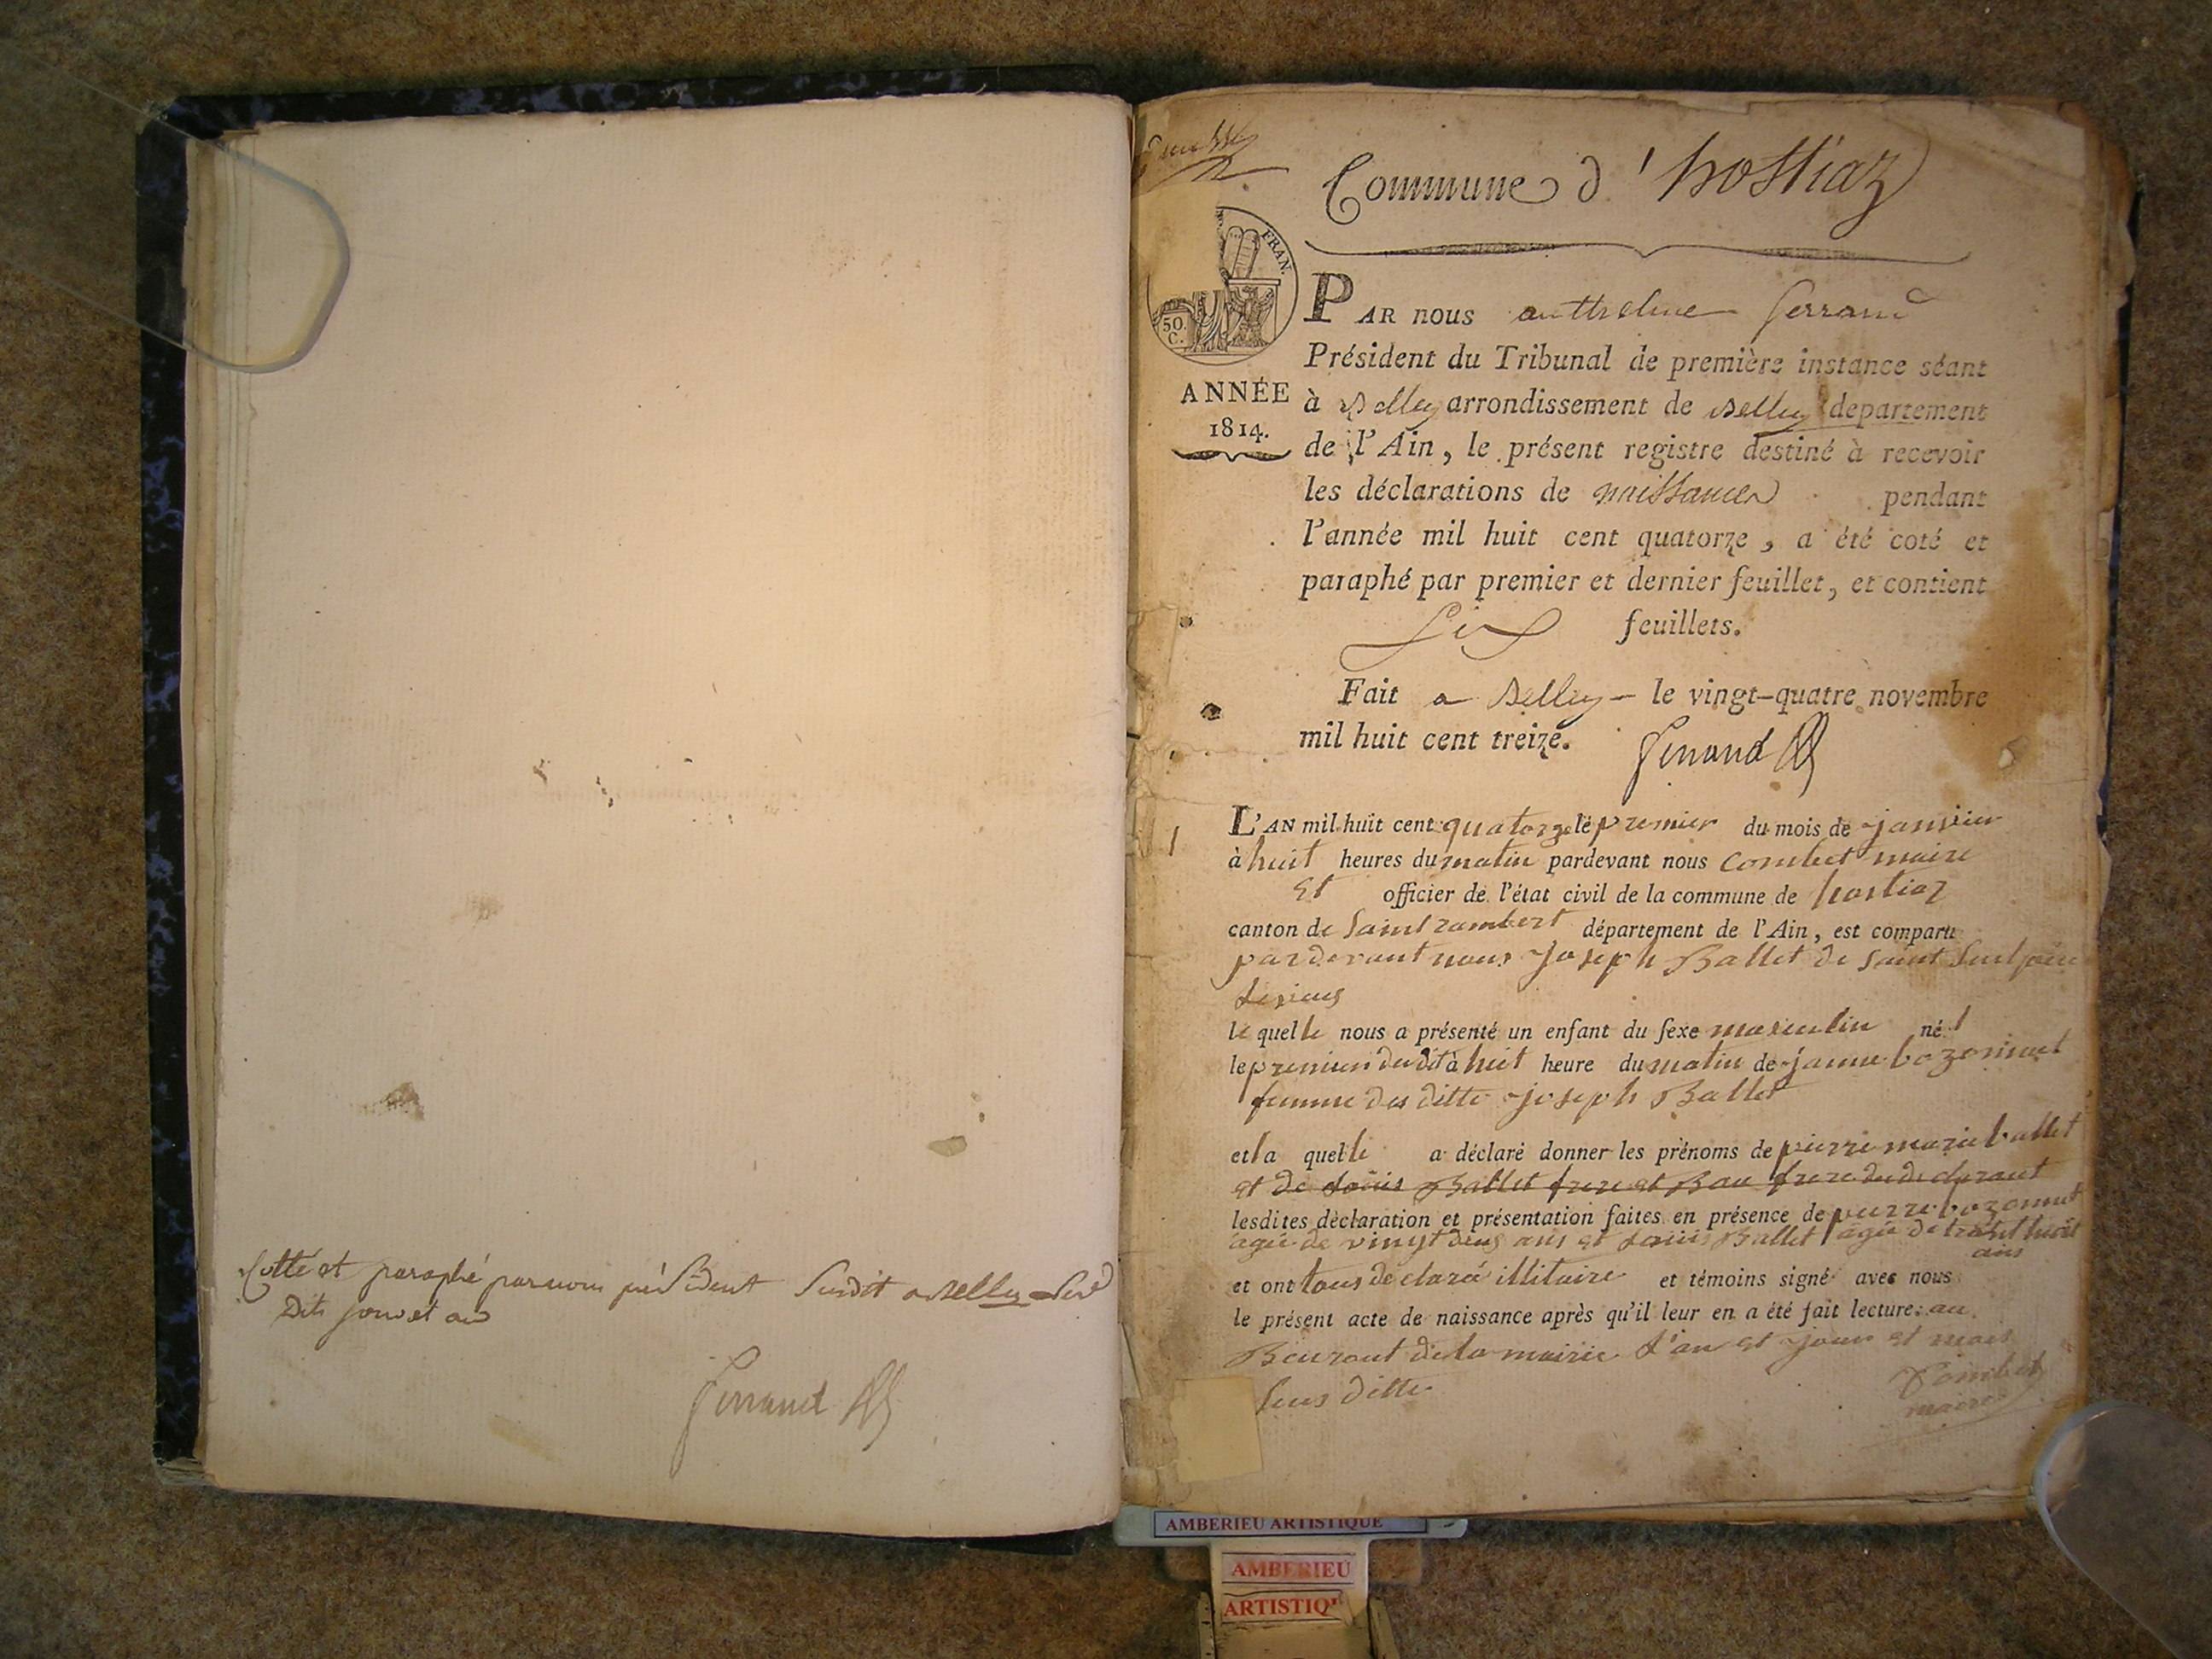 Cotté et paraphé par nous président susdit a Belley les
Dits jour et an
Ferrand
Commune d'hostiaz
FRAN.
50.
C.
ANNÉE
1814.
PAR nous anthelme ferrand
Président du Tribunal de première instance séant
à Belley arrondissement de Belley département
de l'Ain, le présent registre destiné à recevoir
les déclarations de naissances pendant
l'année mil huit cent quatorze, a été coté et
paraphé par premier et dernier feuillet, et contient
Six feuillets.
Fait a Belley – le vingt-quatre novembre
mil huit cent treize. Ferrand
1
L'AN mil huit cent quatorze le premier du mois de janvier
à huit heures du matin pardevant nous Combet maire
et officier de l'état civil de la commune de hostiaz
canton de Saint rambert département de l'Ain, est comparu
pardevant nous Joseph Ballet de Saint Sulpice
le vieus
le quelle nous a présenté un enfant du sexe masculin né
le premier dudit à huit heure du matin de jeanne bozonnet
femme des ditte joseph Ballet
et la quelle a déclaré donner les prénoms de pierre marie ballet
et de Louis Ballet frere et Bau frere du declarant
lesdites déclaration et présentation faites en présence de pierre bozonnet
agée de vingt deus ans et Louis Ballet agée de trante huit
ans
et ont tous declaré illitaire et témoins signé avec nous
le présent acte de naissance après qu'il leur en a été fait lecture. au
Beuraut de la mairie L'an et jour et mois
sus ditte
Combet
maire
AMBERIEU ARTISTIQUE
AMBERIEU
ARTISTIQ